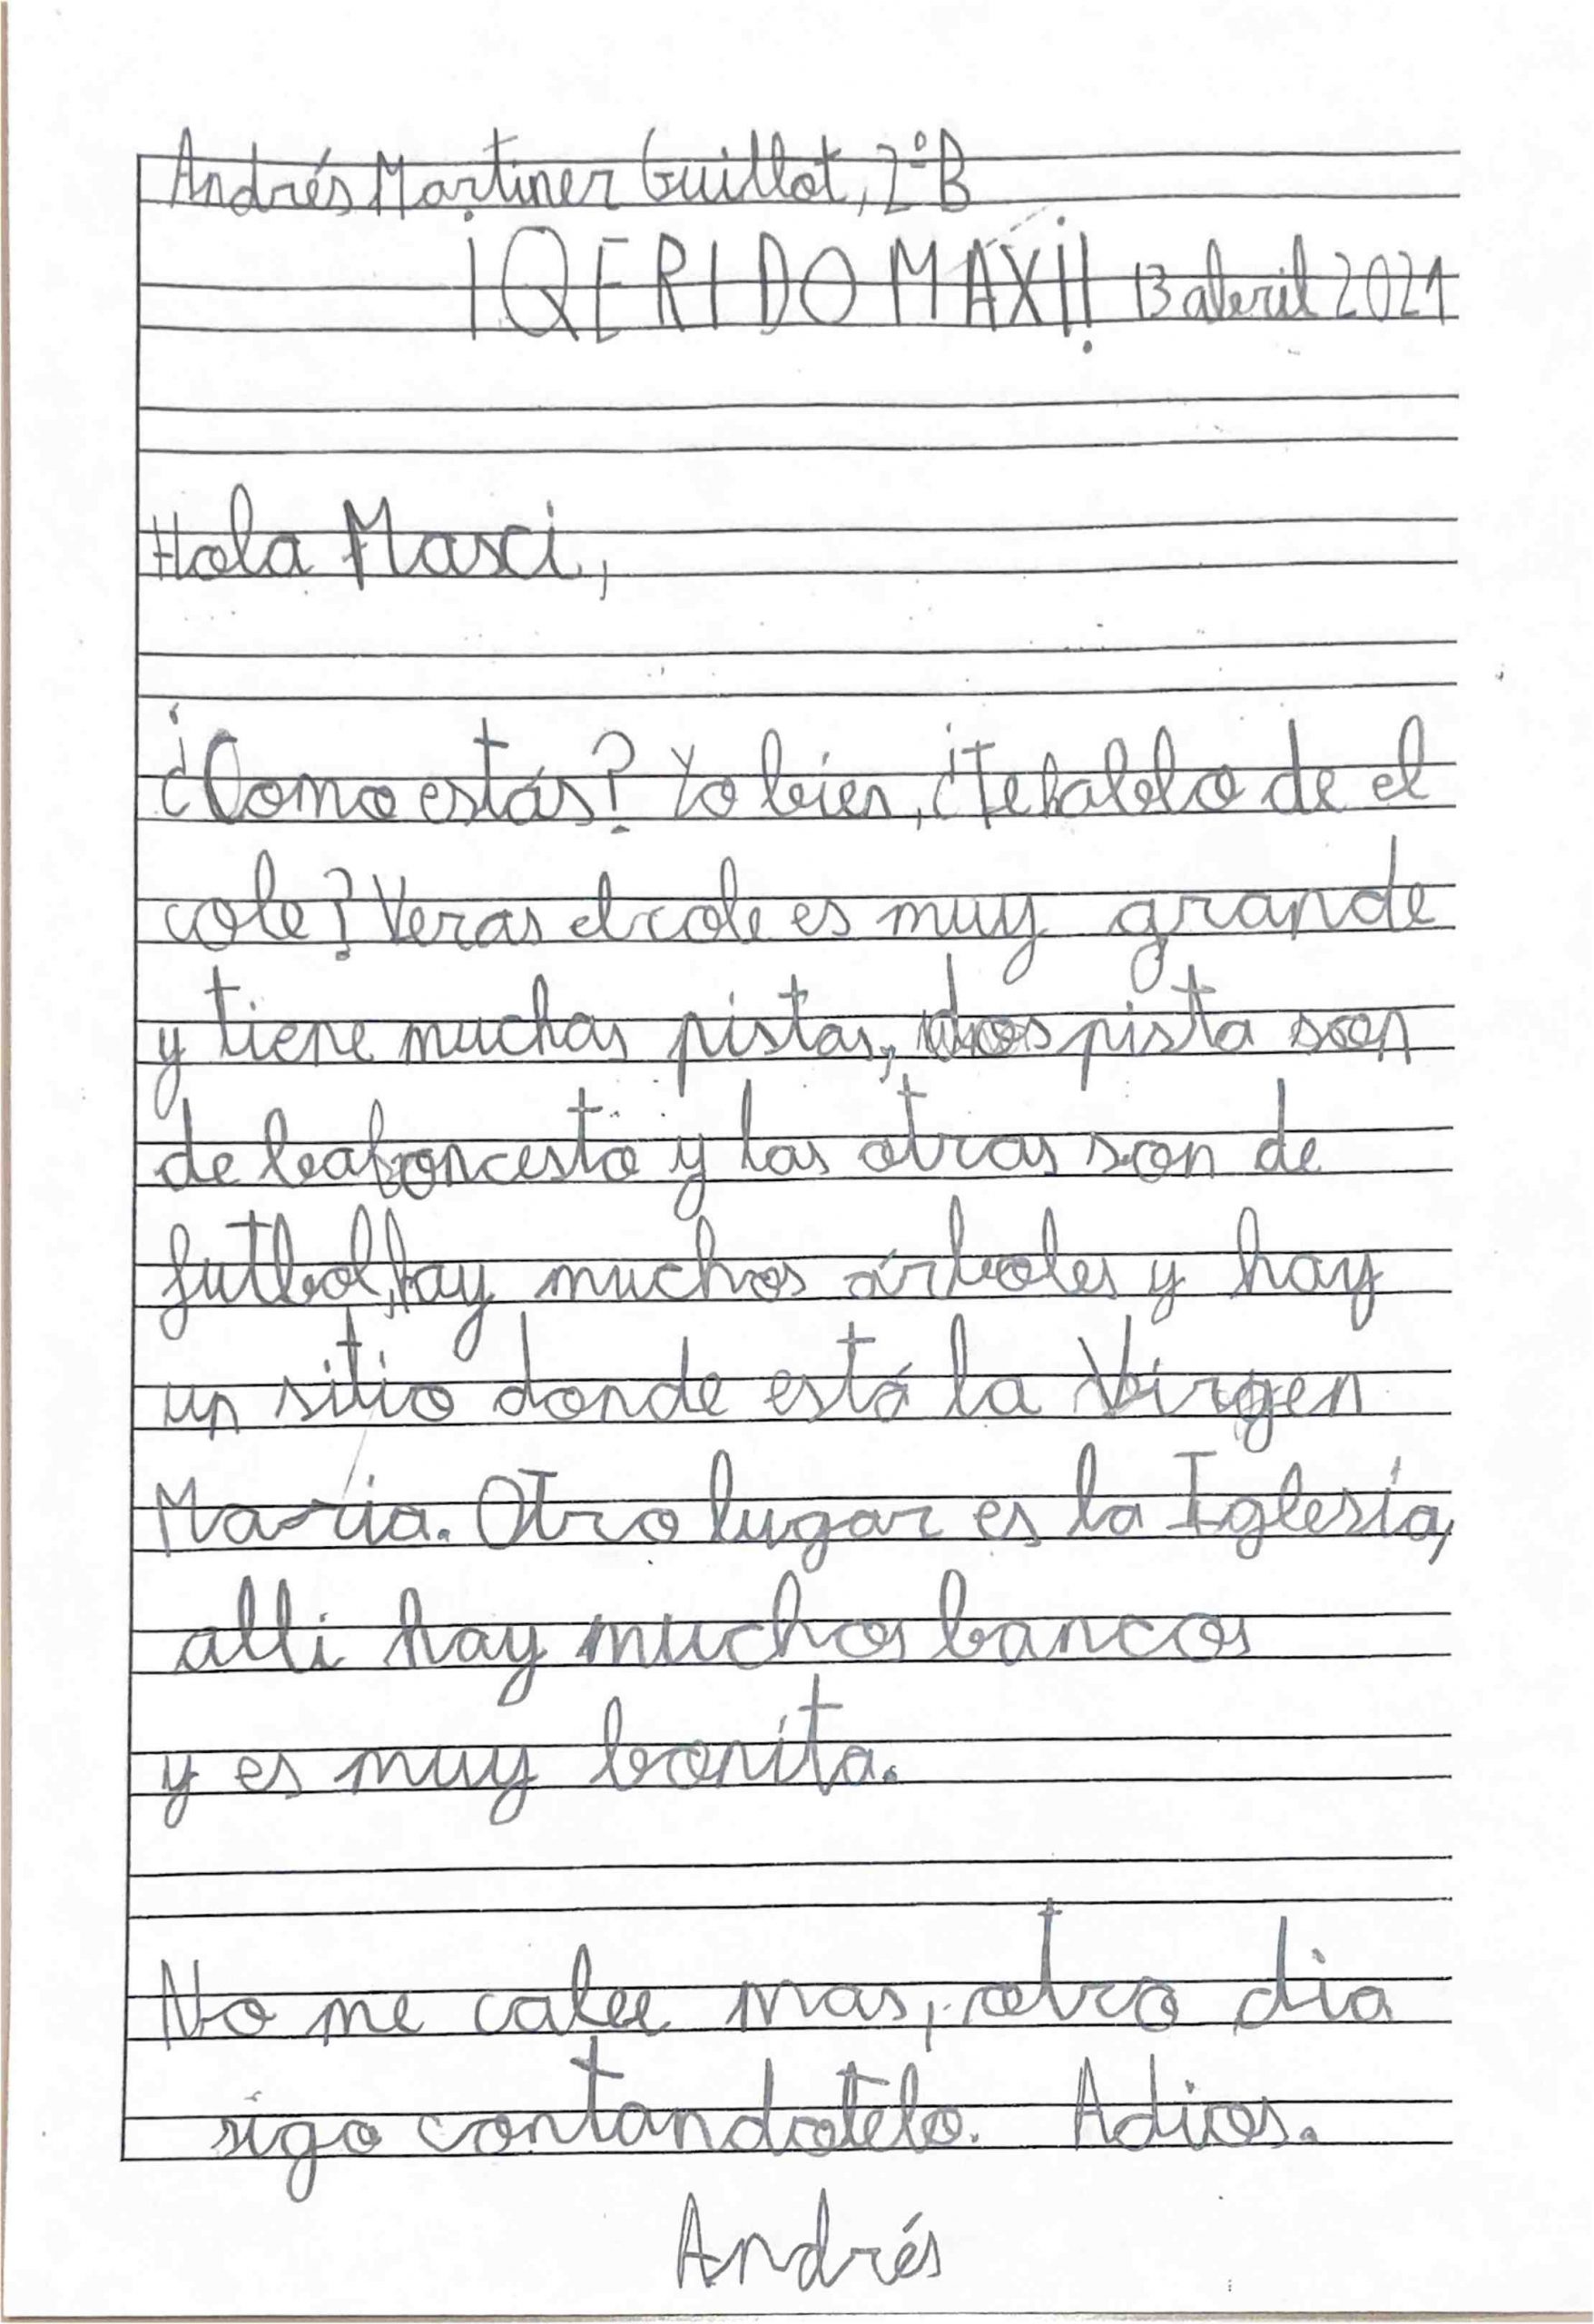 Andrés Martinez Guillot, 2ºB
¡QERIDO MÁXI! 13 abril 2021
Hola Maxi,
¿Como estás? Yo bien, ¿Te hablo de el
cole? Veras el cole es muy grande
y tiene muchas pistas, dos pista son
de baloncesto y las otras son de
futbol, hay muchos árboles y hay
un sitio donde está la Virgen
Maria. Otro lugar es la Iglesía,
alli hay muchos bancos
y es muy bonita.
No me cabe mas, otro dia
sigo contandotelo. Adios.
Andrés